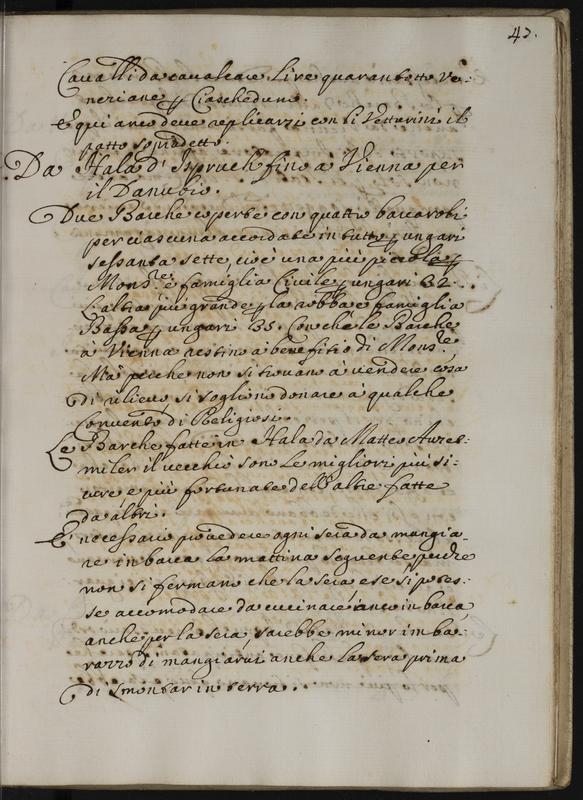 43.
Cavalli da cavalcare Lire quarantotto ve:
neziane p Ciascheduno.
E qui anco deve replicarsi con li Vetturini il
patto sopradetto.
Da Hala d' Ispruch fino à Vienna per
il Danubio.
Due Barche coperte con quattro barcaroli
per ciascuna accordate in tutto p ungari
sessanta sette, cioè una più piccola p
Mons.re e famiglia Civile p ungari 32.
L'altra più grande p la robba e famiglia
Bassa p ungari 35. Con chè le Barche
à Vienna restino à benefitio di Mons.re
Mà perche non si trovano à vendere cosa
di rilievo, si sogliono donare à qualche
Convento di Religiosi.
Le Barche fatte in Hala da Matteo
il vecchio sono le migliori più si:
cure, e più fortunate dell'altre fatte
da altri.
È necessario provedere ogni sera da mangia-
re in barca la mattina seguente perche
non si fermano che la sera e se si potes:
se accomodare da cucinare anco in barca
anche per la sera, sarebbe minor imba:
razzo di mangiarvi anche la sera prima
di smontar in terra.